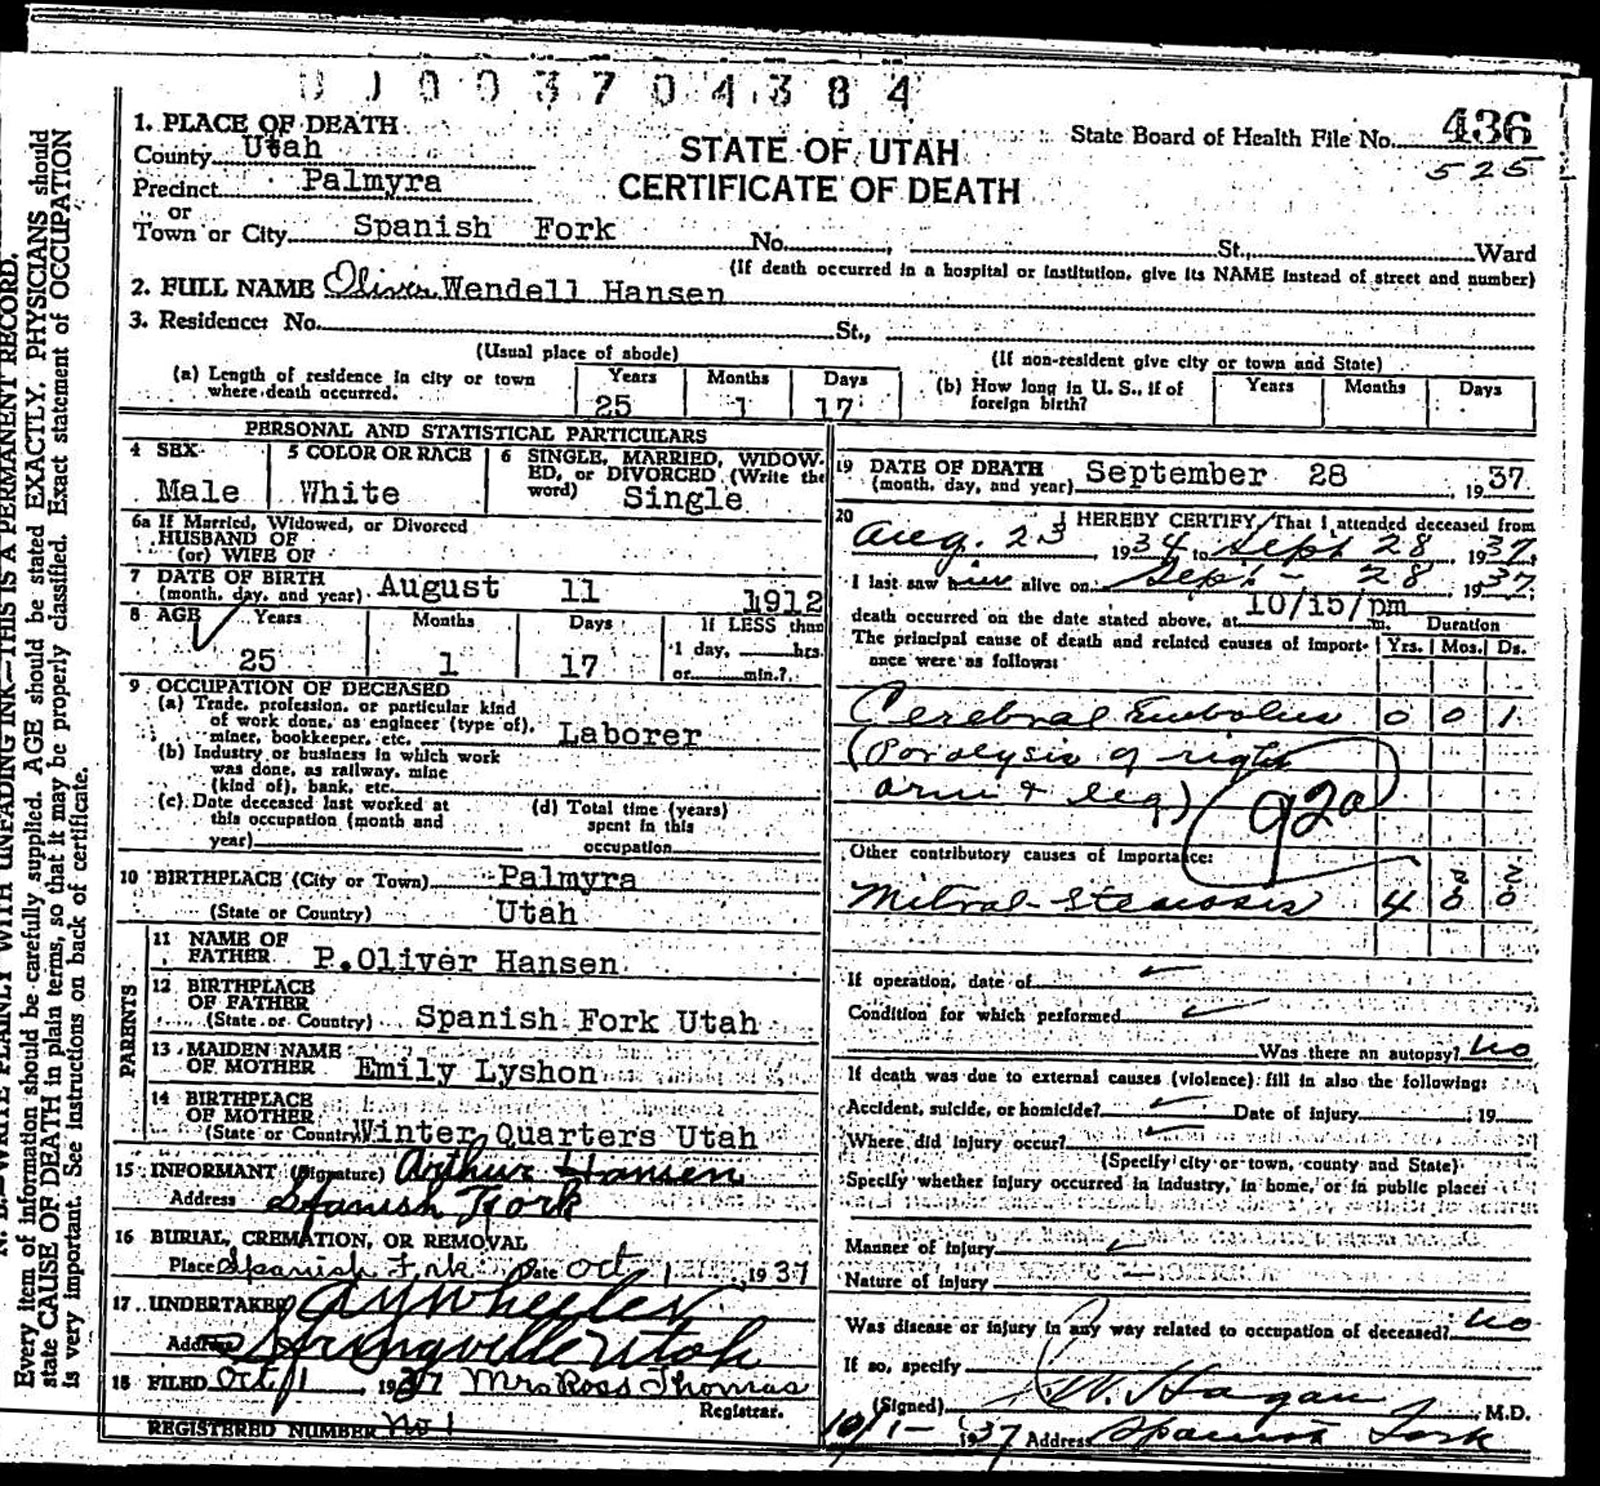 0 0 0 3 7 0 4 3 8 4
State Board of Health File No. 436
525
STATE OF UTAH
CERTIFICATE OF DEATH
1. PLACE OF DEATH
County Utah
Precinct Palmyra
or
Town or City Spanish Fork No. , St., Ward
(If death occurred in a hospital or institution, give its NAME instead of street and number)
2. FULL NAME Oliver Wendell Hansen
3. Residence: No. St.,
(Usual place of abode) (If non-resident give city or town and State)
(a) Length of residence in city or town where death occurred. Years 25 Months 1 Days 17
(b) How long in U. S., if of foreign birth? Years Months Days
PERSONAL AND STATISTICAL PARTICULARS
4 SEX Male
5 COLOR OR RACE White
6 SINGLE, MARRIED, WIDOW-
ED, or DIVORCED (Write the
word) Single
6a If Married, Widowed, or Divorced
HUSBAND OF
(or) WIFE OF
7 DATE OF BIRTH
(month, day, and year) August 11 1912
8 AGE Years Months Days If LESS than
25 1 17 1 day, hrs.
or min.?
9 OCCUPATION OF DECEASED
(a) Trade, profession, or particular kind
of work done, as engineer (type of),
miner, bookkeeper, etc. Laborer
(b) Industry or business in which work
was done, as railway, mine
(kind of), bank, etc.
(c) Date deceased last worked at
this occupation (month and
year)
(d) Total time (years)
spent in this
occupation
10 BIRTHPLACE (City or Town) Palmyra
(State or Country) Utah
PARENTS
11 NAME OF
FATHER P.Oliver Hansen
12 BIRTHPLACE
OF FATHER
(State or Country) Spanish Fork Utah
13 MAIDEN NAME
OF MOTHER Emily Lyshon
14 BIRTHPLACE
OF MOTHER
(State or Country) Winter Quarters Utah
15 INFORMANT (Signature) Arthur Hansen
Address Spanish Fork
16 BURIAL, CREMATION, OR REMOVAL
Place Spanish Frk Date Oct 1 1937
17 UNDERTAKER A Y Wheeler
Address Springville Utah
18 FILED Oct 1 1937 Mrs Ross Thomas
Registrar.
REGISTERED NUMBER No 1
19 DATE OF DEATH
(month, day, and year) September 28 1937
20 I HEREBY CERTIFY, That I attended deceased from
Aug. 23, 1934 to Sept 28 1937,
I last saw him alive on Sept - 28 1937;
death occurred on the date stated above, at 10/15/pm m. Duration
The principal cause of death and related causes of import- Yrs. Mos. Ds.
ance were as follows:
Cerebral Embolus 0 0 1
(Paralysis of right
arm & leg) 92a
Other contributory causes of importance:
Mitral Stenosis 4
If operation, date of
Condition for which performed
Was there an autopsy? no
If death was due to external causes (violence) fill in also the following:
Accident, suicide, or homicide? Date of injury 19
Where did injury occur?
(Specify city or town, county and State)
Specify whether injury occurred in industry, in home, or in public place:
Manner of injury
Nature of injury
Was disease or injury in any way related to occupation of deceased? no
If so, specify
(Signed) W. Hagan M.D.
10/1- 1937 Address Spanish Fork
N. B.—WRITE PLAINLY WITH UNFADING INK—THIS IS A PERMANENT RECORD.
Every item of information should be carefully supplied. AGE should be stated EXACTLY. PHYSICIANS should
state CAUSE OF DEATH in plain terms, so that it may be properly classified. Exact statement of OCCUPATION
is very important. See instructions on back of certificate.